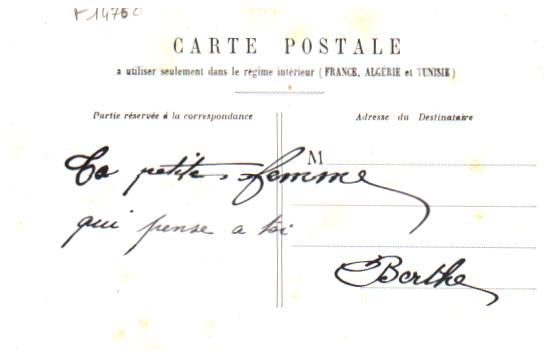 F14750
CARTE POSTALE
a utiliser seulement dans le régime intérieur (FRANCE, ALGÉRIE et TUNISIE)
Partie réservée à la correspondance
Adresse du Destinataire
M
Ta petite femme
qui pense a toi
Berthe